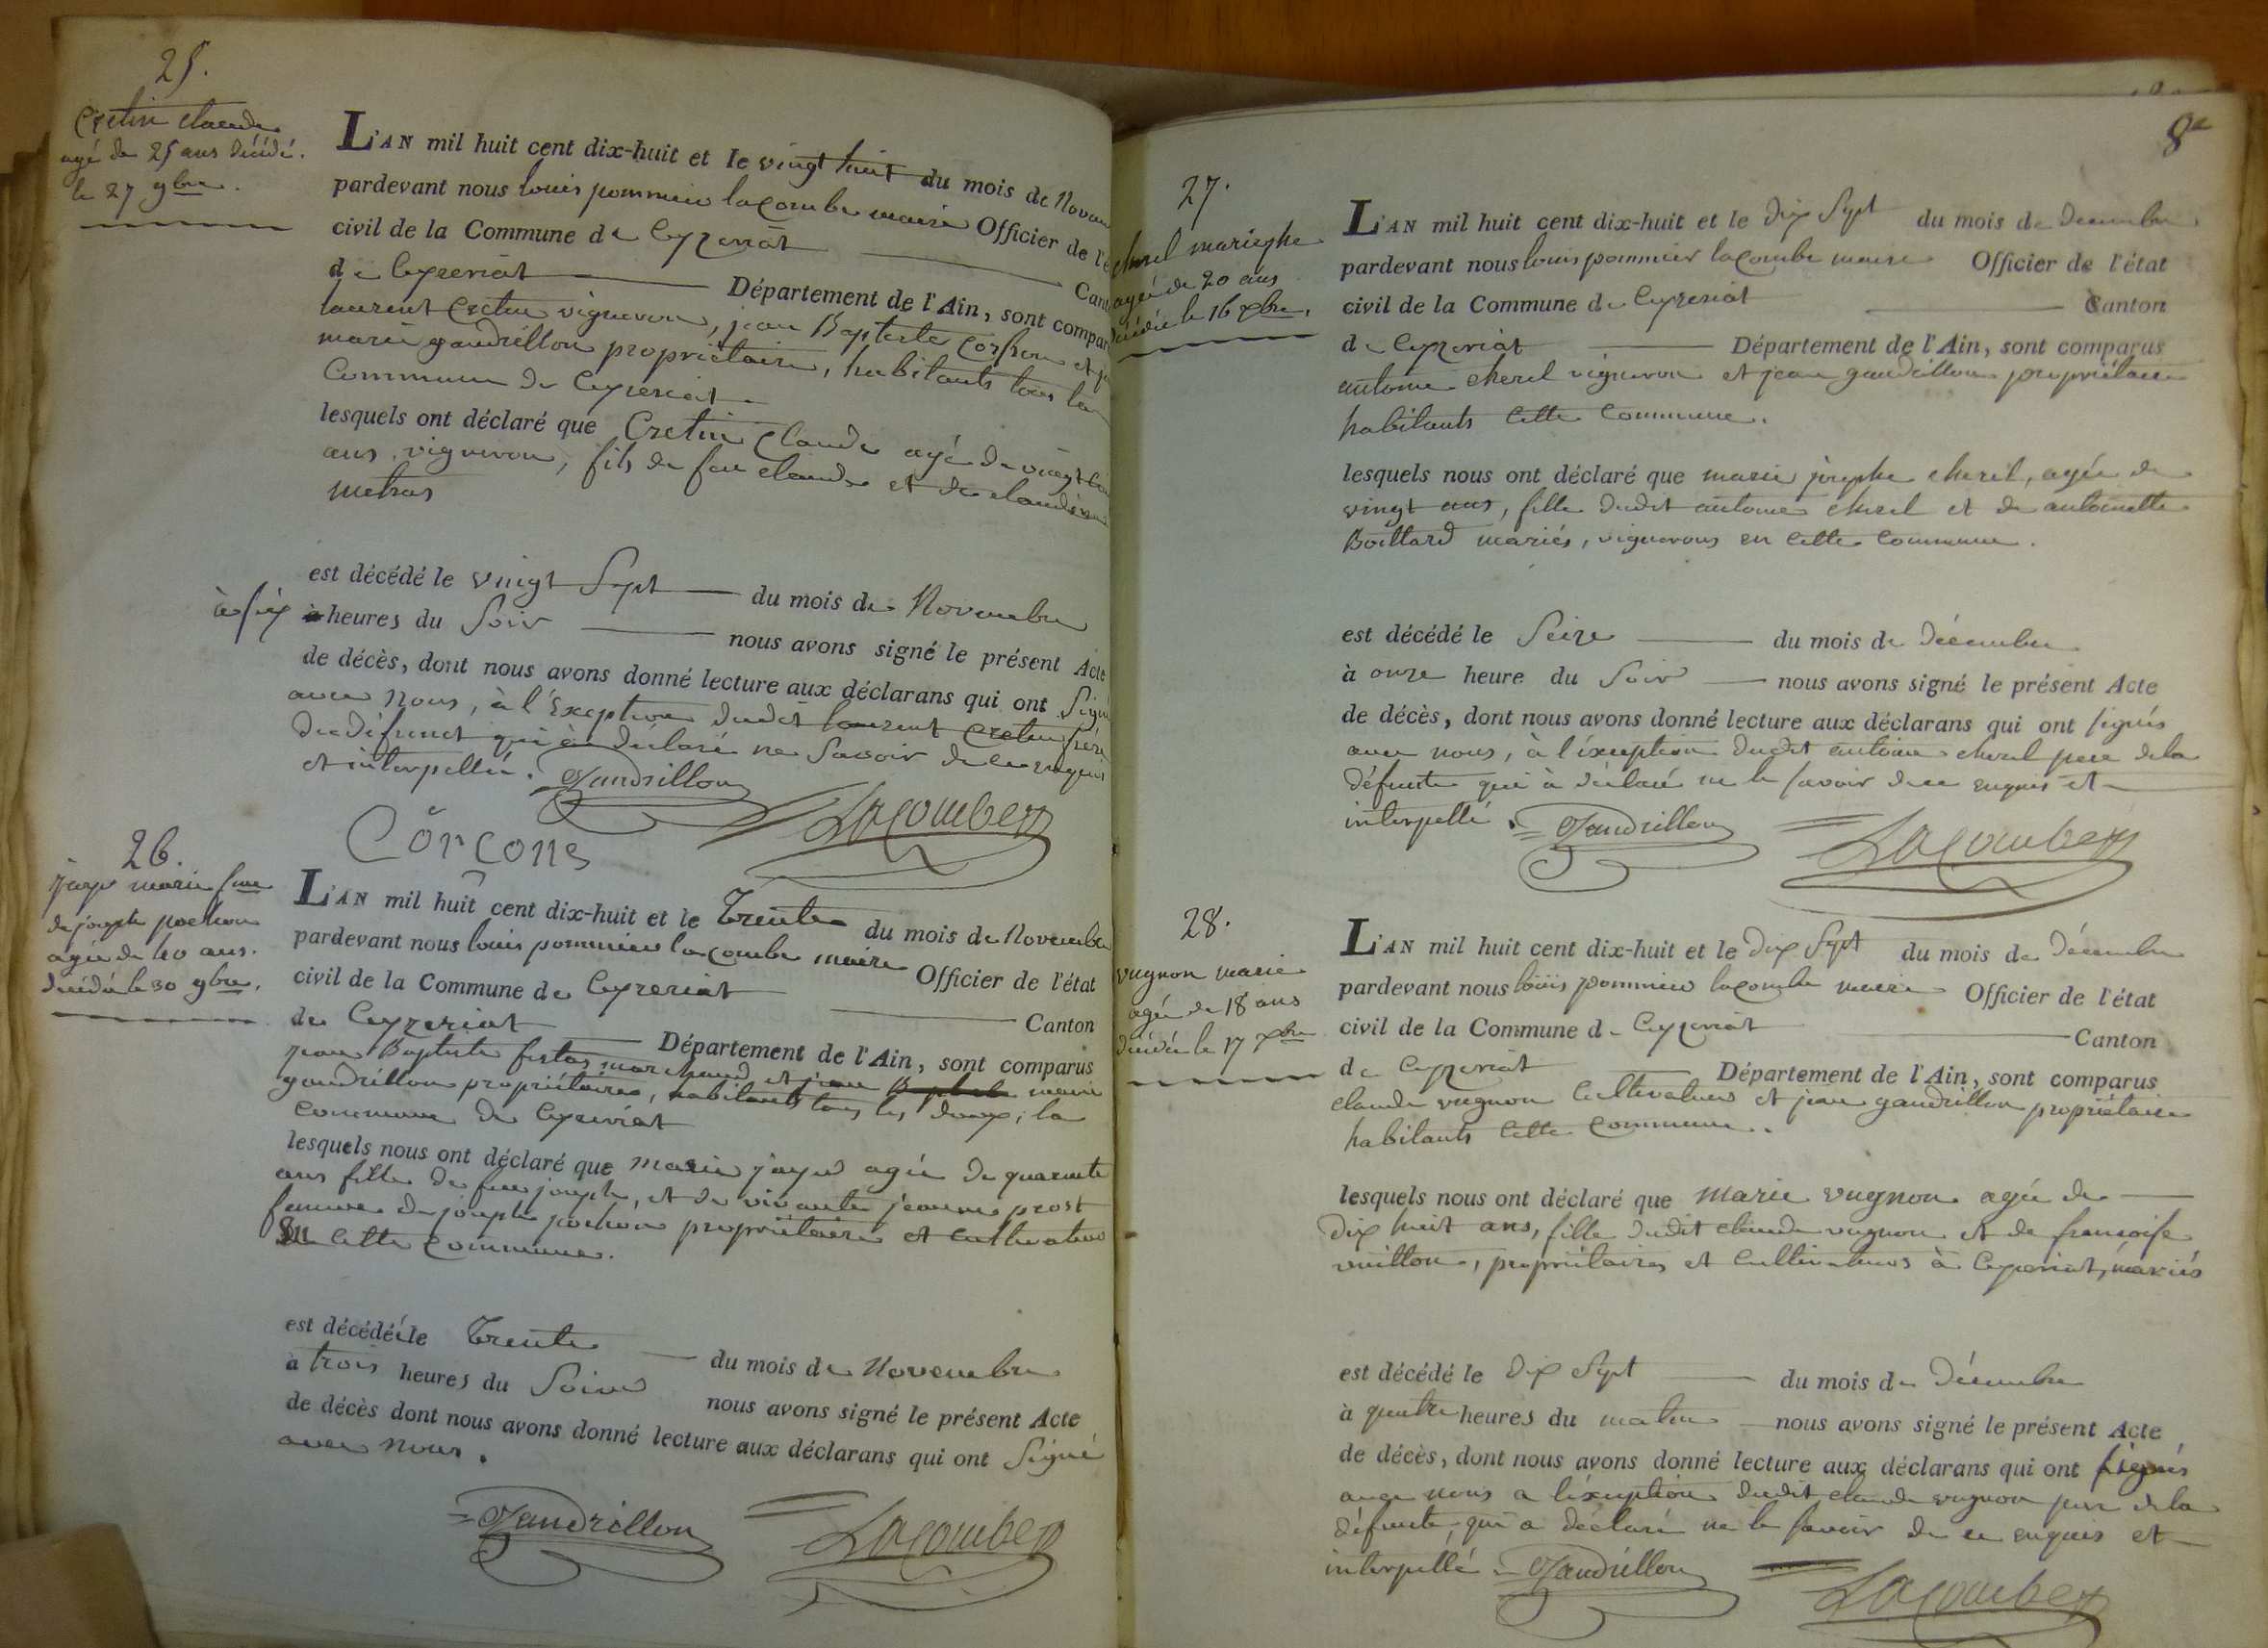 25.
Cretin claude
agé de 25 ans décédé.
le 27 9bre.
L'AN mil huit cent dix-huit et le vingt huit du mois de Novem
pardevant nous louis pommier lacombe maire Officier de l'é
civil de la Commune de Ceyzeriat Cant
de Ceyzeriat Département de l'Ain, sont compar
laurent Cretin vigneron, jean Baptiste et
marie gaudrillon propriétaire, habitants tous la
Commune de Ceyzeriat
lesquels ont déclaré que Cretin Claude agé de vingt
ans vigneron, fils de feu claude et de claudine
metras
est décédé le vingt Sept du mois de Novembre
à six heures du Soir nous avons signé le présent Acte
de décès, dont nous avons donné lecture aux déclarans qui ont Signé
avec nous, à l'Exception dudit laurent Cretin frère
du défunct qui à déclaré ne Savoir de ce enquis
et interpellé.
Gaudrillon
Lacombe
Corcons
26.
marie fme
de joseph pochon
agée de 40 ans.
décédée le 30 9bre.
L'AN mil huit cent dix-huit et le Trente du mois de Novembre
pardevant nous louis pommier lacombe maire Officier de l'état
civil de la Commune de Ceyzeriat Canton
de Ceyzeriat Département de l'Ain, sont comparus
jean Baptiste marchand et jean marie
gaudrillon propriétaires, habitants tous les deux, la
commune de Ceyzeriat
lesquels nous ont déclaré que marie jayr agée de quarante
ans fille de feu joseph, et de vivante jeanne prost
femme de joseph pochon propriétaire et cultivateur
En cette commune.
est décédée le Trente du mois de Novembre
à trois heures du Soir nous avons signé le présent Acte
de décès dont nous avons donné lecture aux déclarans qui ont Signé
avec nous.
Gaudrillon
Lacombe
8e
27.
cherel mariephe
agée de 20 ans
décédée le 16 Xbre.
L'AN mil huit cent dix-huit et le dix Sept du mois de decembre
pardevant nous louis pommier lacombe maire Officier de l'état
civil de la Commune de Ceyzeriat Canton
de Ceyzeriat Département de l'Ain, sont comparus
antoine cherel vigneron et jean gaudrillon propriétaire
habitants cette commune.
lesquels nous ont déclaré que marie josephe cherel, agée de
vingt ans, fille dudit antoine cherel et de antoinette
Boillard mariés, vignerons en cette commune.
est décédé le Seize du mois de décembre
à onze heure du Soir nous avons signé le présent Acte
de décès, dont nous avons donné lecture aux déclarans qui ont signés
avec nous, à l'éxeption dudit antoine cherel pere de la
défunte qui à déclaré ne le savoir de ce enquis et
interpellé.
Gaudrillon
Lacombe
28.
vugnon marie
agée de 18 ans
décédée le 17 Xbre
L'AN mil huit cent dix-huit et le dix Sept du mois de décembre
pardevant nous louis pommier lacombe maire Officier de l'état
civil de la Commune de Ceyzeriat Canton
de Ceyzeriat Département de l'Ain, sont comparus
claude vugnon Cultivateur et jean gaudrillon propriétaire
habitants cette commune.
lesquels nous ont déclaré que marie vugnon agée de
dix huit ans, fille dudit claude vugnon et de francoise
vuillon, propriétaires et cultivateurs à Ceyzeriat, mariés
est décédé le dix Sept du mois de décembre
à quatre heures du matin nous avons signé le présent Acte
de décès, dont nous avons donné lecture aux déclarans qui ont signés
avec nous a l'éxeption dudit claude vugnon pere de la
défunte, qui a déclaré ne le savoir de ce enquis et
interpellé.
Gaudrillon
Lacombe